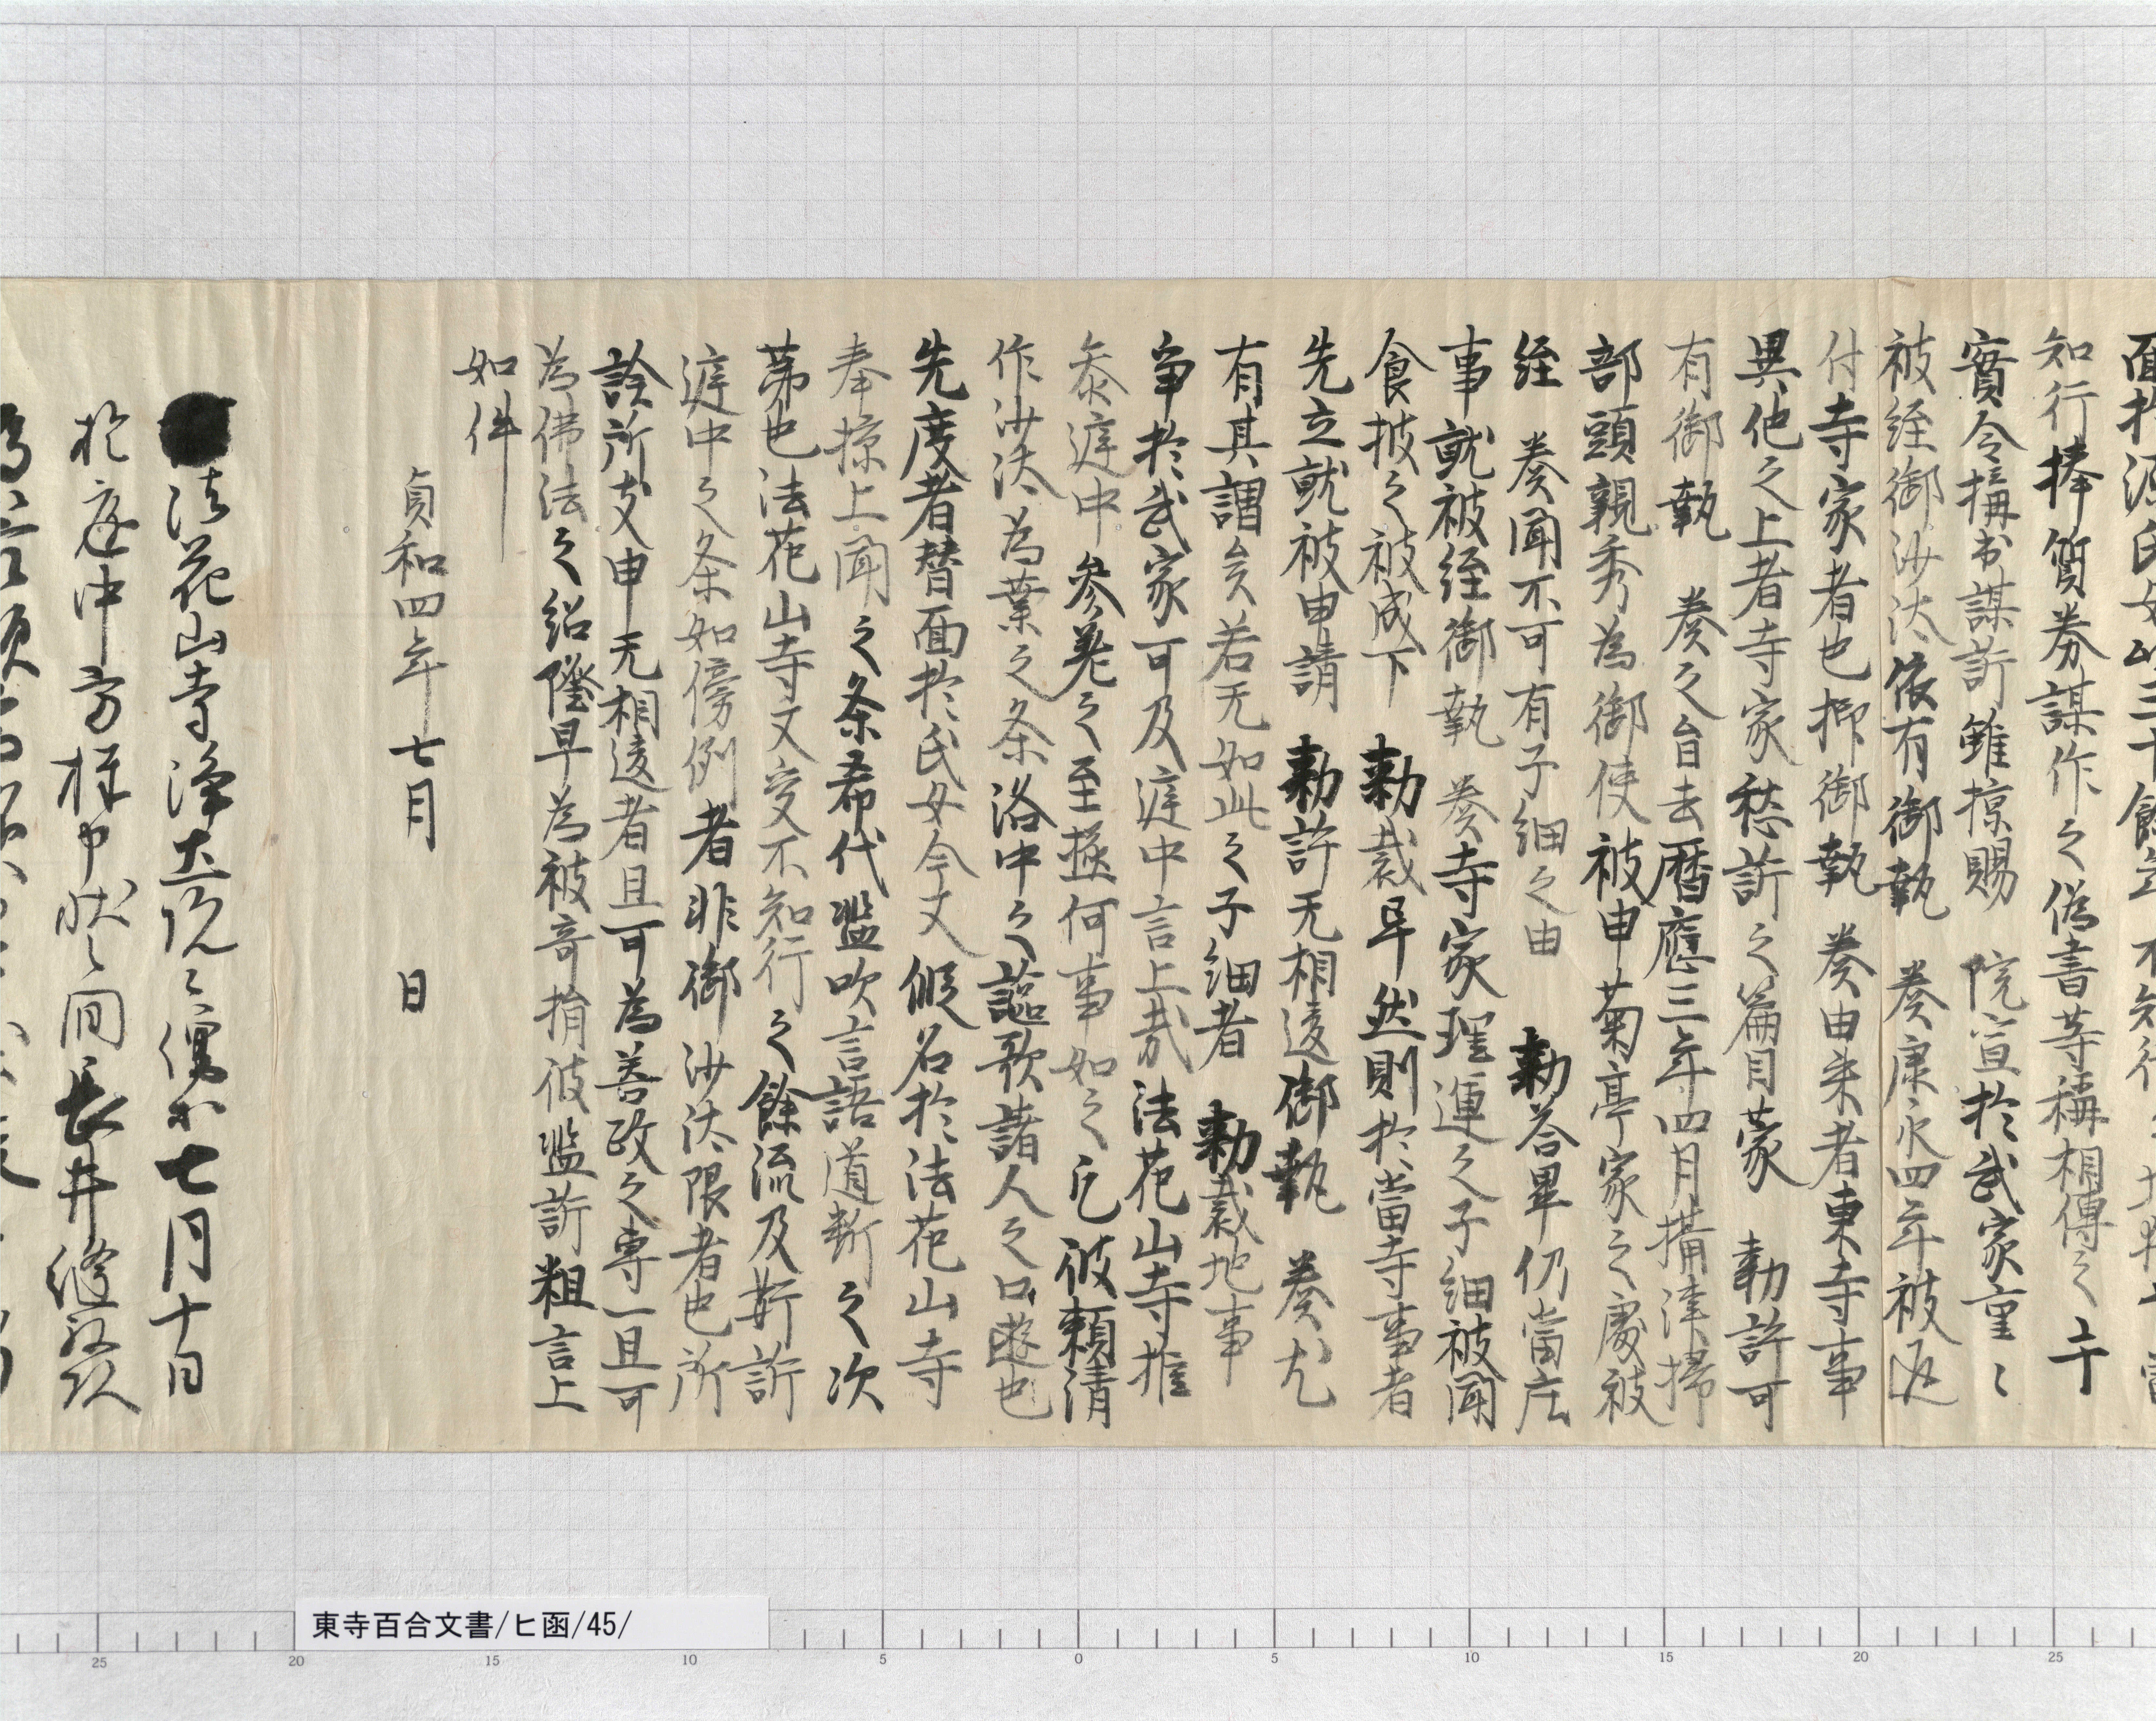 知行捧質券謀作之偽書等稱相傳之上
實令搆出謀訴雖掠賜 院宣於武家重々
被経御沙汰依有御執 奏康永四年被返
付寺家者也抑御執 奏由来者東寺事
異他之上者寺家愁訴之篇目蒙 勅許可
有御執 奏之旨去暦應三年四月攝津掃
部頭親秀為御使被申菊亭家之處被
経 奏聞不可有子細之由 勅答畢仍當庄
事就被経御執 奏寺家理運之子細被聞
食披之被成下 勅裁早然則於當寺事者
先立就被申請 勅許无相違御執 奏尤
有其謂矣若无如此之子細者 勅裁地事
争於武家可及庭中言上哉法花山寺推
参庭中参差之至極何事如之乞彼頼清
作沙汰為業之条洛中之謳歌諸人之口遊也
先度者替面於氏女今又假名於法花山寺
奉掠上聞之条希代濫吹言語道断之次
第也法花山寺文交不知行之餘流及姧訴
庭中之条如傍例者非御沙汰限者也所
詮所支申无相違者且可為善政之専一且可
為佛法之紹隆早為被奇捐彼濫訴粗言上
如件
貞和四年七月 日
法花山寺浄土院々僧申七月十日
於庭中方様申状之間長井縫殿頭
東寺百合文書/ヒ函/45/
25 20 15 10 5 0 5 10 15 20 25